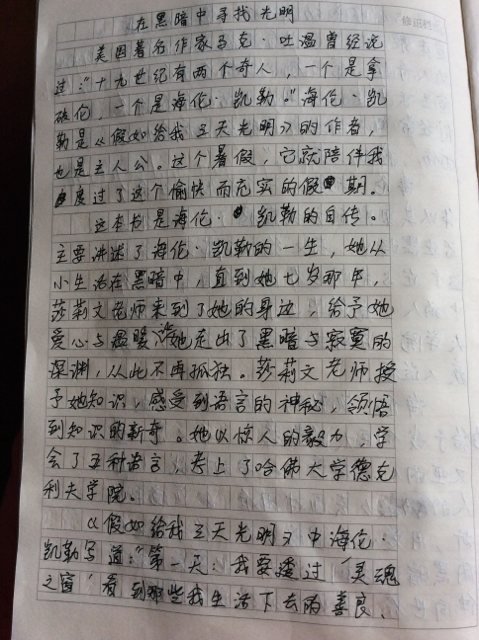 在黑暗中寻找光明
美国著名作家马克·吐温曾经说
过:"十九世纪有两个奇人,一个是拿
破仑,一个是海伦·凯勒。"海伦·凯
勒是《假如给我三天光明》的作者,
也是主人公。这个暑假,它就陪伴我
度过了这个愉快而充实的假期。
这本书是海伦·凯勒的自传。
主要讲述了海伦·凯勒的一生,她从
小生活在黑暗中,直到她七岁那年,
莎莉文老师来到了她的身边,给予她
爱心与温暖,让她走出了黑暗与寂寞的
深渊,从此不再孤独。莎莉文老师授
予她知识,感受到语言的神秘,领悟
到知识的新奇。她以惊人的毅力,学
会了五种语言,考上了哈佛大学德克
利夫学院。
《假如给我三天光明》中海伦·
凯勒写道:"第一天:我要透过'灵魂
之窗'看到那些我生活下去的善良、